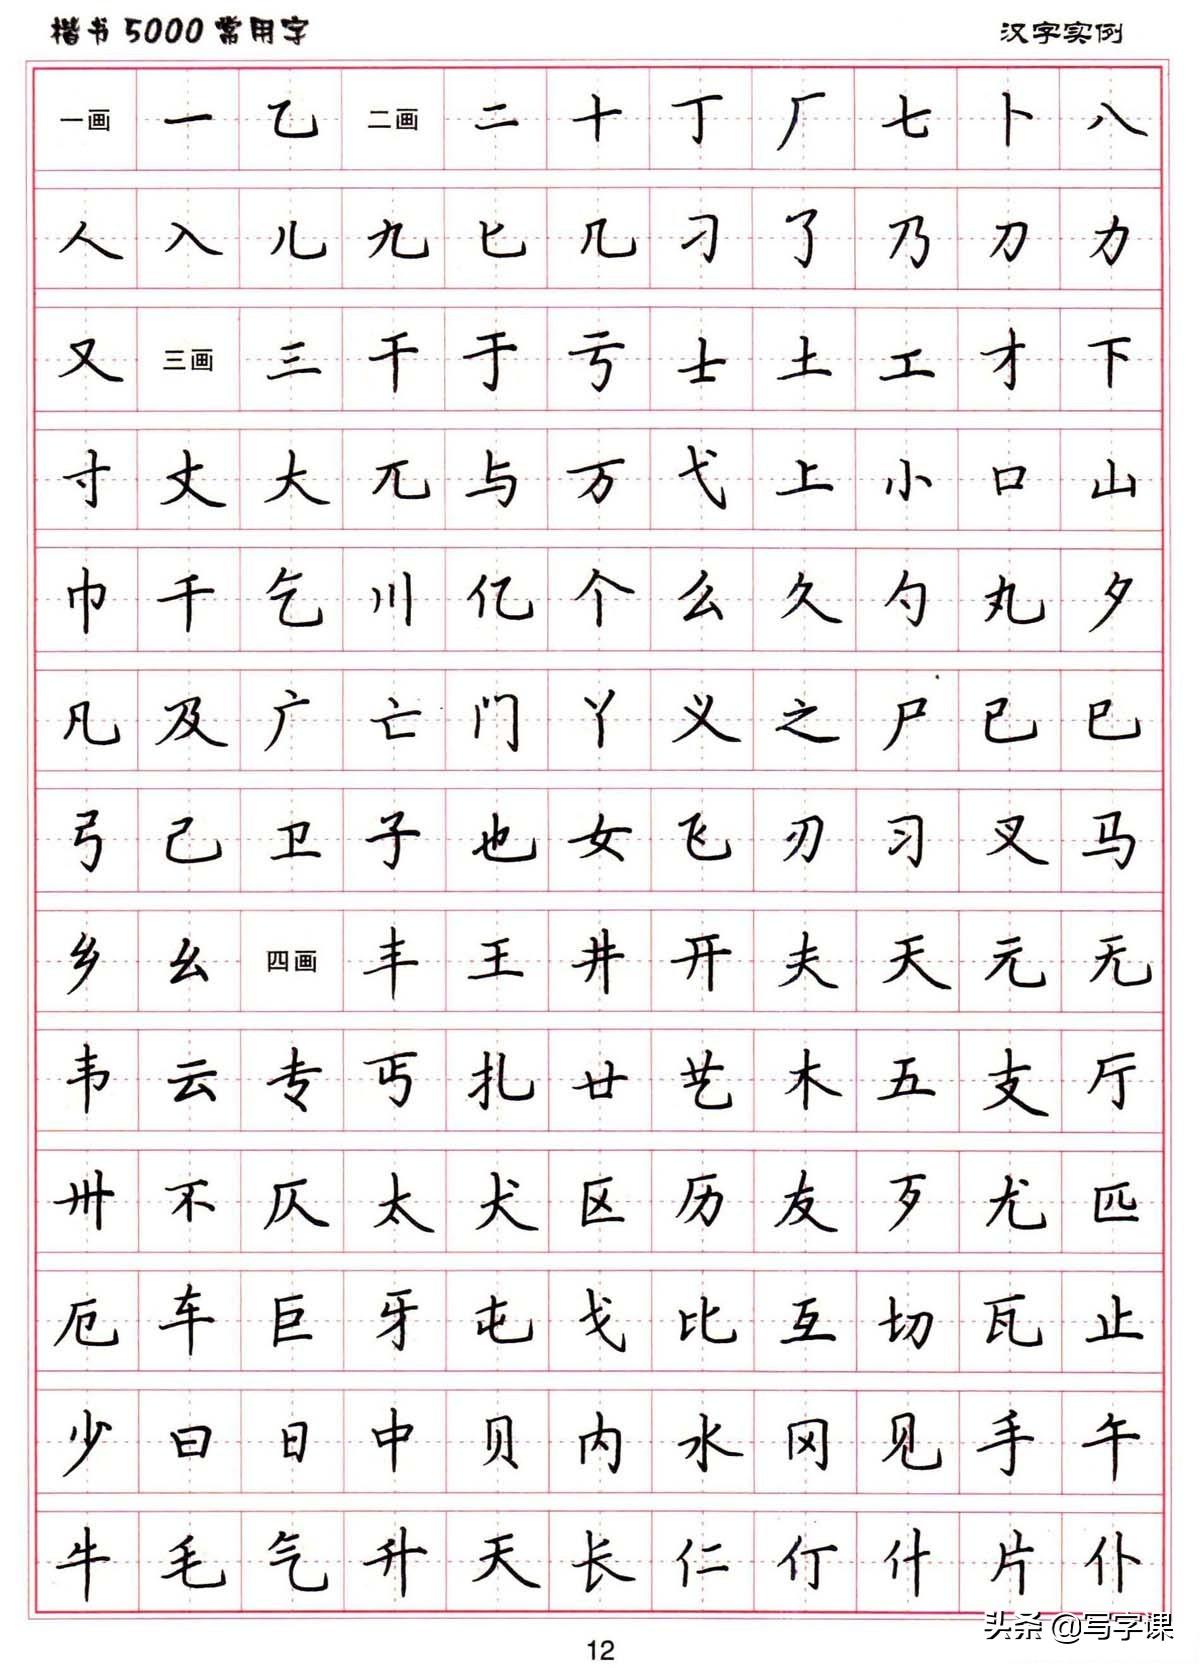 楷书5000常用字 汉字实例
一画 一 乙 二画 二 十 丁 厂 七 卜 八
人 入 儿 九 匕 几 刁 了 乃 刀 力
又 三画 三 干 于 亏 士 土 工 才 下
寸 丈 大 兀 与 万 弋 上 小 口 山
巾 千 乞 川 亿 个 么 久 勺 丸 夕
凡 及 广 亡 门 丫 义 之 尸 已 巳
弓 己 卫 子 也 女 飞 刃 习 叉 马
乡 幺 四画 丰 王 井 开 夫 天 元 无
韦 云 专 丐 扎 廿 艺 木 五 支 厅
卅 不 仄 太 犬 区 历 友 歹 尤 匹
厄 车 巨 牙 屯 戈 比 互 切 瓦 止
少 曰 日 中 贝 内 水 冈 见 手 午
牛 毛 气 升 夭 长 仁 仃 什 片 仆
头条 @写字课
12